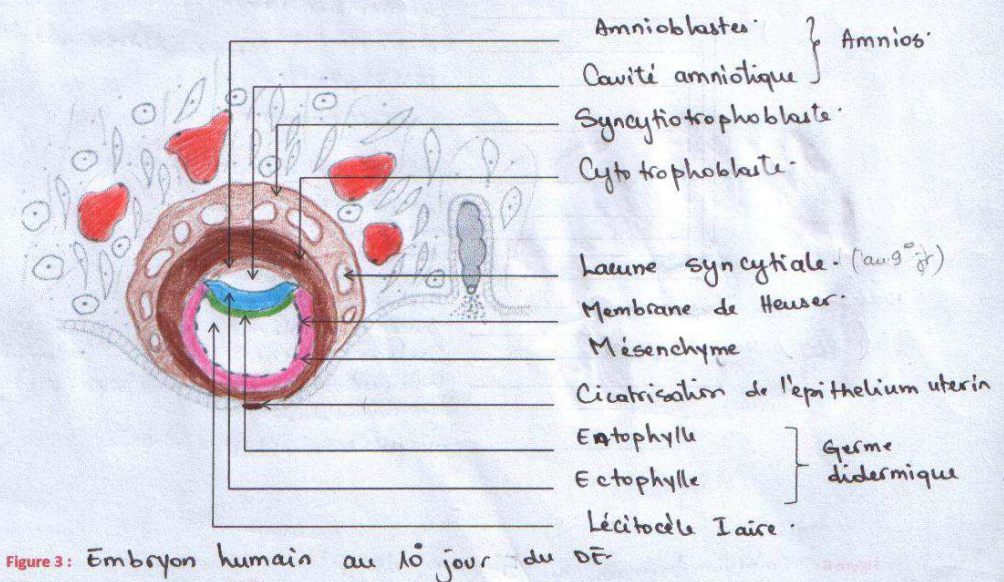 Amnioblastes
Cavité amniotique
} Amnios.
Syncytiotrophoblaste.
Cytotrophoblaste.
Lacune syncytiale. (au 9° jr)
Membrane de Heuser.
Mésenchyme
Cicatrisation de l'epithelium uterin
Entophylle
Ectophylle
} Germe
didermique
Lécitocèle Iaire.
Figure 3 : Embryon humain au 10° jour du DE